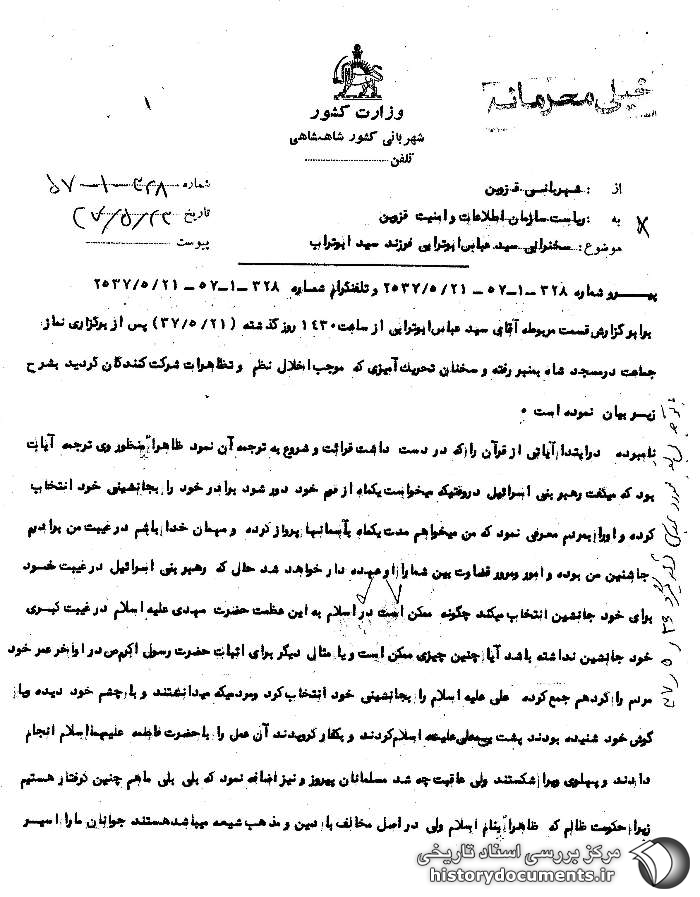 خیلی محرمانه
۱
وزارت کشور
شهربانی کشور شاهنشاهی
تلفن
از : شهربانی قزوین
شماره ۳۲۸-۱-۵۷
به : ریاست سازمان اطلاعات و امنیت قزوین
تاریخ ۳۷/۵/۲۲
موضوع : سخنرانی سید عباس ابوترابی فرزند سید ابوتراب
پیوست
پیرو شماره ۳۲۸-۱-۵۷ - ۲۵۳۷/۵/۲۱ و تلفنگرام شماره ۳۲۸-۱-۵۷ - ۲۵۳۷/۵/۲۱
برابر گزارش قسمت مربوطه آقای سید عباس ابوترابی از ساعت ۱۴۳۰ روز گذشته (۳۷/۵/۲۱) پس از برگزاری نماز
جماعت در مسجد شاه بمنبر رفته و سخنان تحریک آمیزی که موجب اخلال نظم و تظاهرات شرکت کنندگان گردید بشرح
زیر بیان نموده است .
نامبرده در ابتدا آیاتی از قرآن را که در دست داشت قرائت و شروع به ترجمه آن نمود ظاهرا" منظور وی ترجمه آیات
بود که میگفت رهبر بنی اسرائیل در وقتیکه میخواست یکماه از قوم خود دور شود برادر خود را بجانشینی خود انتخاب
کرده و او را بمردم معرفی نمود که من میخواهم مدت یکماه بآسمانها پرواز کرده و میهمان خدا باشم در غیبت من برادرم
جانشین من بوده و امور ومرور قضاوت بین شما را او عهده دار خواهد شد حال که رهبر بنی اسرائیل در غیبت خود
برای خود جانشین انتخاب میکند چگونه ممکن است در اسلام به این عظمت حضرت مهدی علیه اسلام در غیبت کبری
خود جانشین نداشته باشد آیا چنین چیزی ممکن است و یا مثالی دیگر برای اثبات حضرت رسول اکرم ص در اواخر عمر خود
مردم را گردهم جمع کرده علی علیه اسلام را بجانشینی خود انتخاب کرد ومردمیکه میدانستند و با چشم خود دیده وبا
گوش خود شنیده بودند پشت به علی علیه اسلام کردند و بکفار گرویدند آن عمل را با حضرت فاطمه علیها اسلام انجام
دادند و پهلوی ویرا شکستند ولی عاقبت چه شد مسلمانان پیروز و نیز اضافه نمود که بلی بلی ماهم چنین گرفتار هستیم
زیرا حکومت ظالم که ظاهرا" بنام اسلام ولی در اصل مخالف با دین و مذهب شیعه میباشد هستند جوانان ما را اسیر
۳۷/۵/۲۶
مرکز بررسی اسناد تاریخی
historydocuments.ir